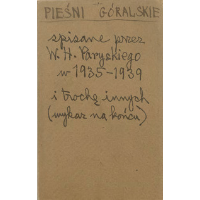 PIEŚNI GÓRALSKIE
spisane przez
W. H. Paryskiego
w 1935-1939
i trochę innych
(wykaz na końcu)